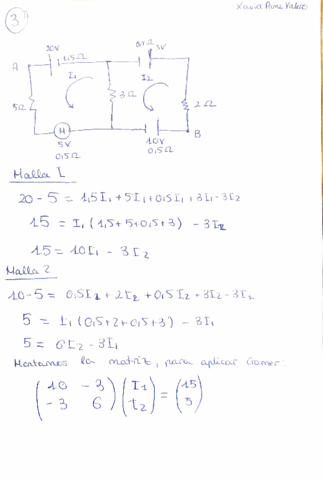 Xavier
3
20V
1,5Ω
0,5Ω
5V
A
I₁
I₂
5Ω
3Ω
2Ω
M
B
5V
0,5Ω
10V
0,5Ω
Malla 1
20 - 5 = 1,5I₁ + 5I₁ + 0,5I₁ + 3I₁ - 3I₂
15 = I₁ (1,5 + 5 + 0,5 + 3) - 3I₂
15 = 10I₁ - 3I₂
Malla 2
10 - 5 = 0,5I₂ + 2I₂ + 0,5I₂ + 3I₂ - 3I₁
5 = I₂ (0,5 + 2 + 0,5 + 3) - 3I₁
5 = 6I₂ - 3I₁
Montamos la matriz, para aplicar Cramer:
(10 -3) (I₁) = (15)
(-3 6) (I₂) (5)